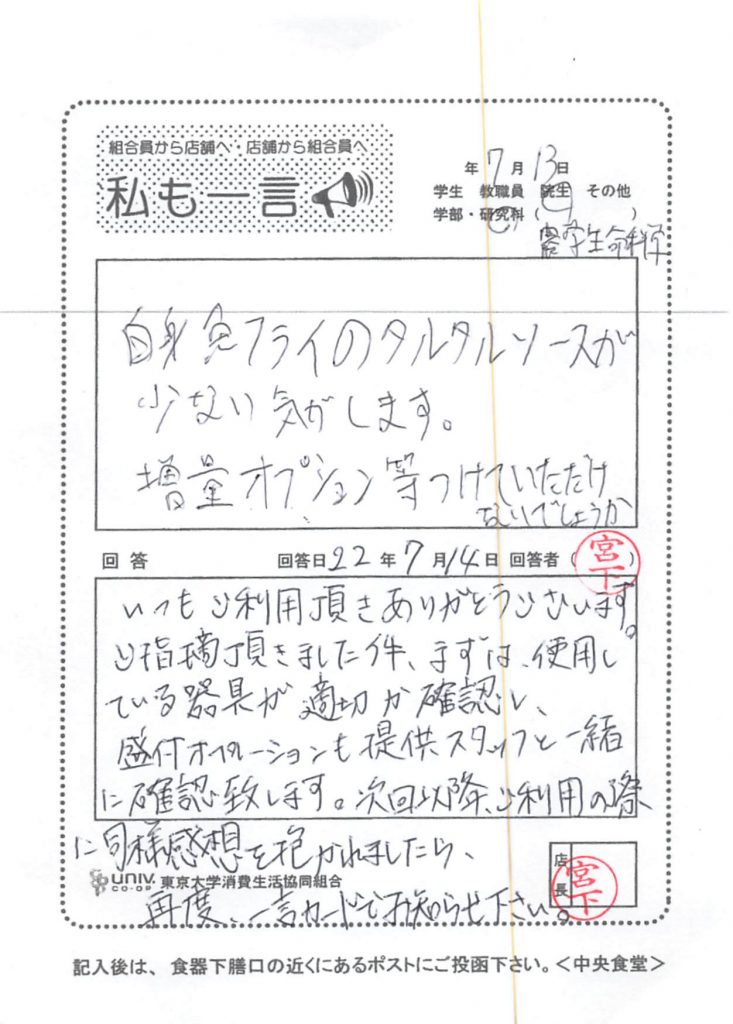 組合員から店舗へ・店舗から組合員へ
私も一言
年 7 月 13 日
学生 教職員 院生 その他
学部・研究科 ( )
農学生命科学
白身魚フライのタルタルソースが
少ない気がします。
増量オプション等つけていただけ
ないでしょうか
回答 回答日 22 年 7 月 14 日 回答者 ( 宮下 )
いつもご利用頂きありがとうございます。
ご指摘頂きました件、まずは、使用し
ている器具が適切か確認し、
盛付オペレーションも提供スタッフと一緒
に確認致します。次回以降、ご利用の際
に同様感想を抱かれましたら、
再度、一言カードでお知らせ下さい。
UNIV. CO-OP 東京大学消費生活協同組合
店長 宮下
記入後は、食器下膳口の近くにあるポストにご投函下さい。<中央食堂>